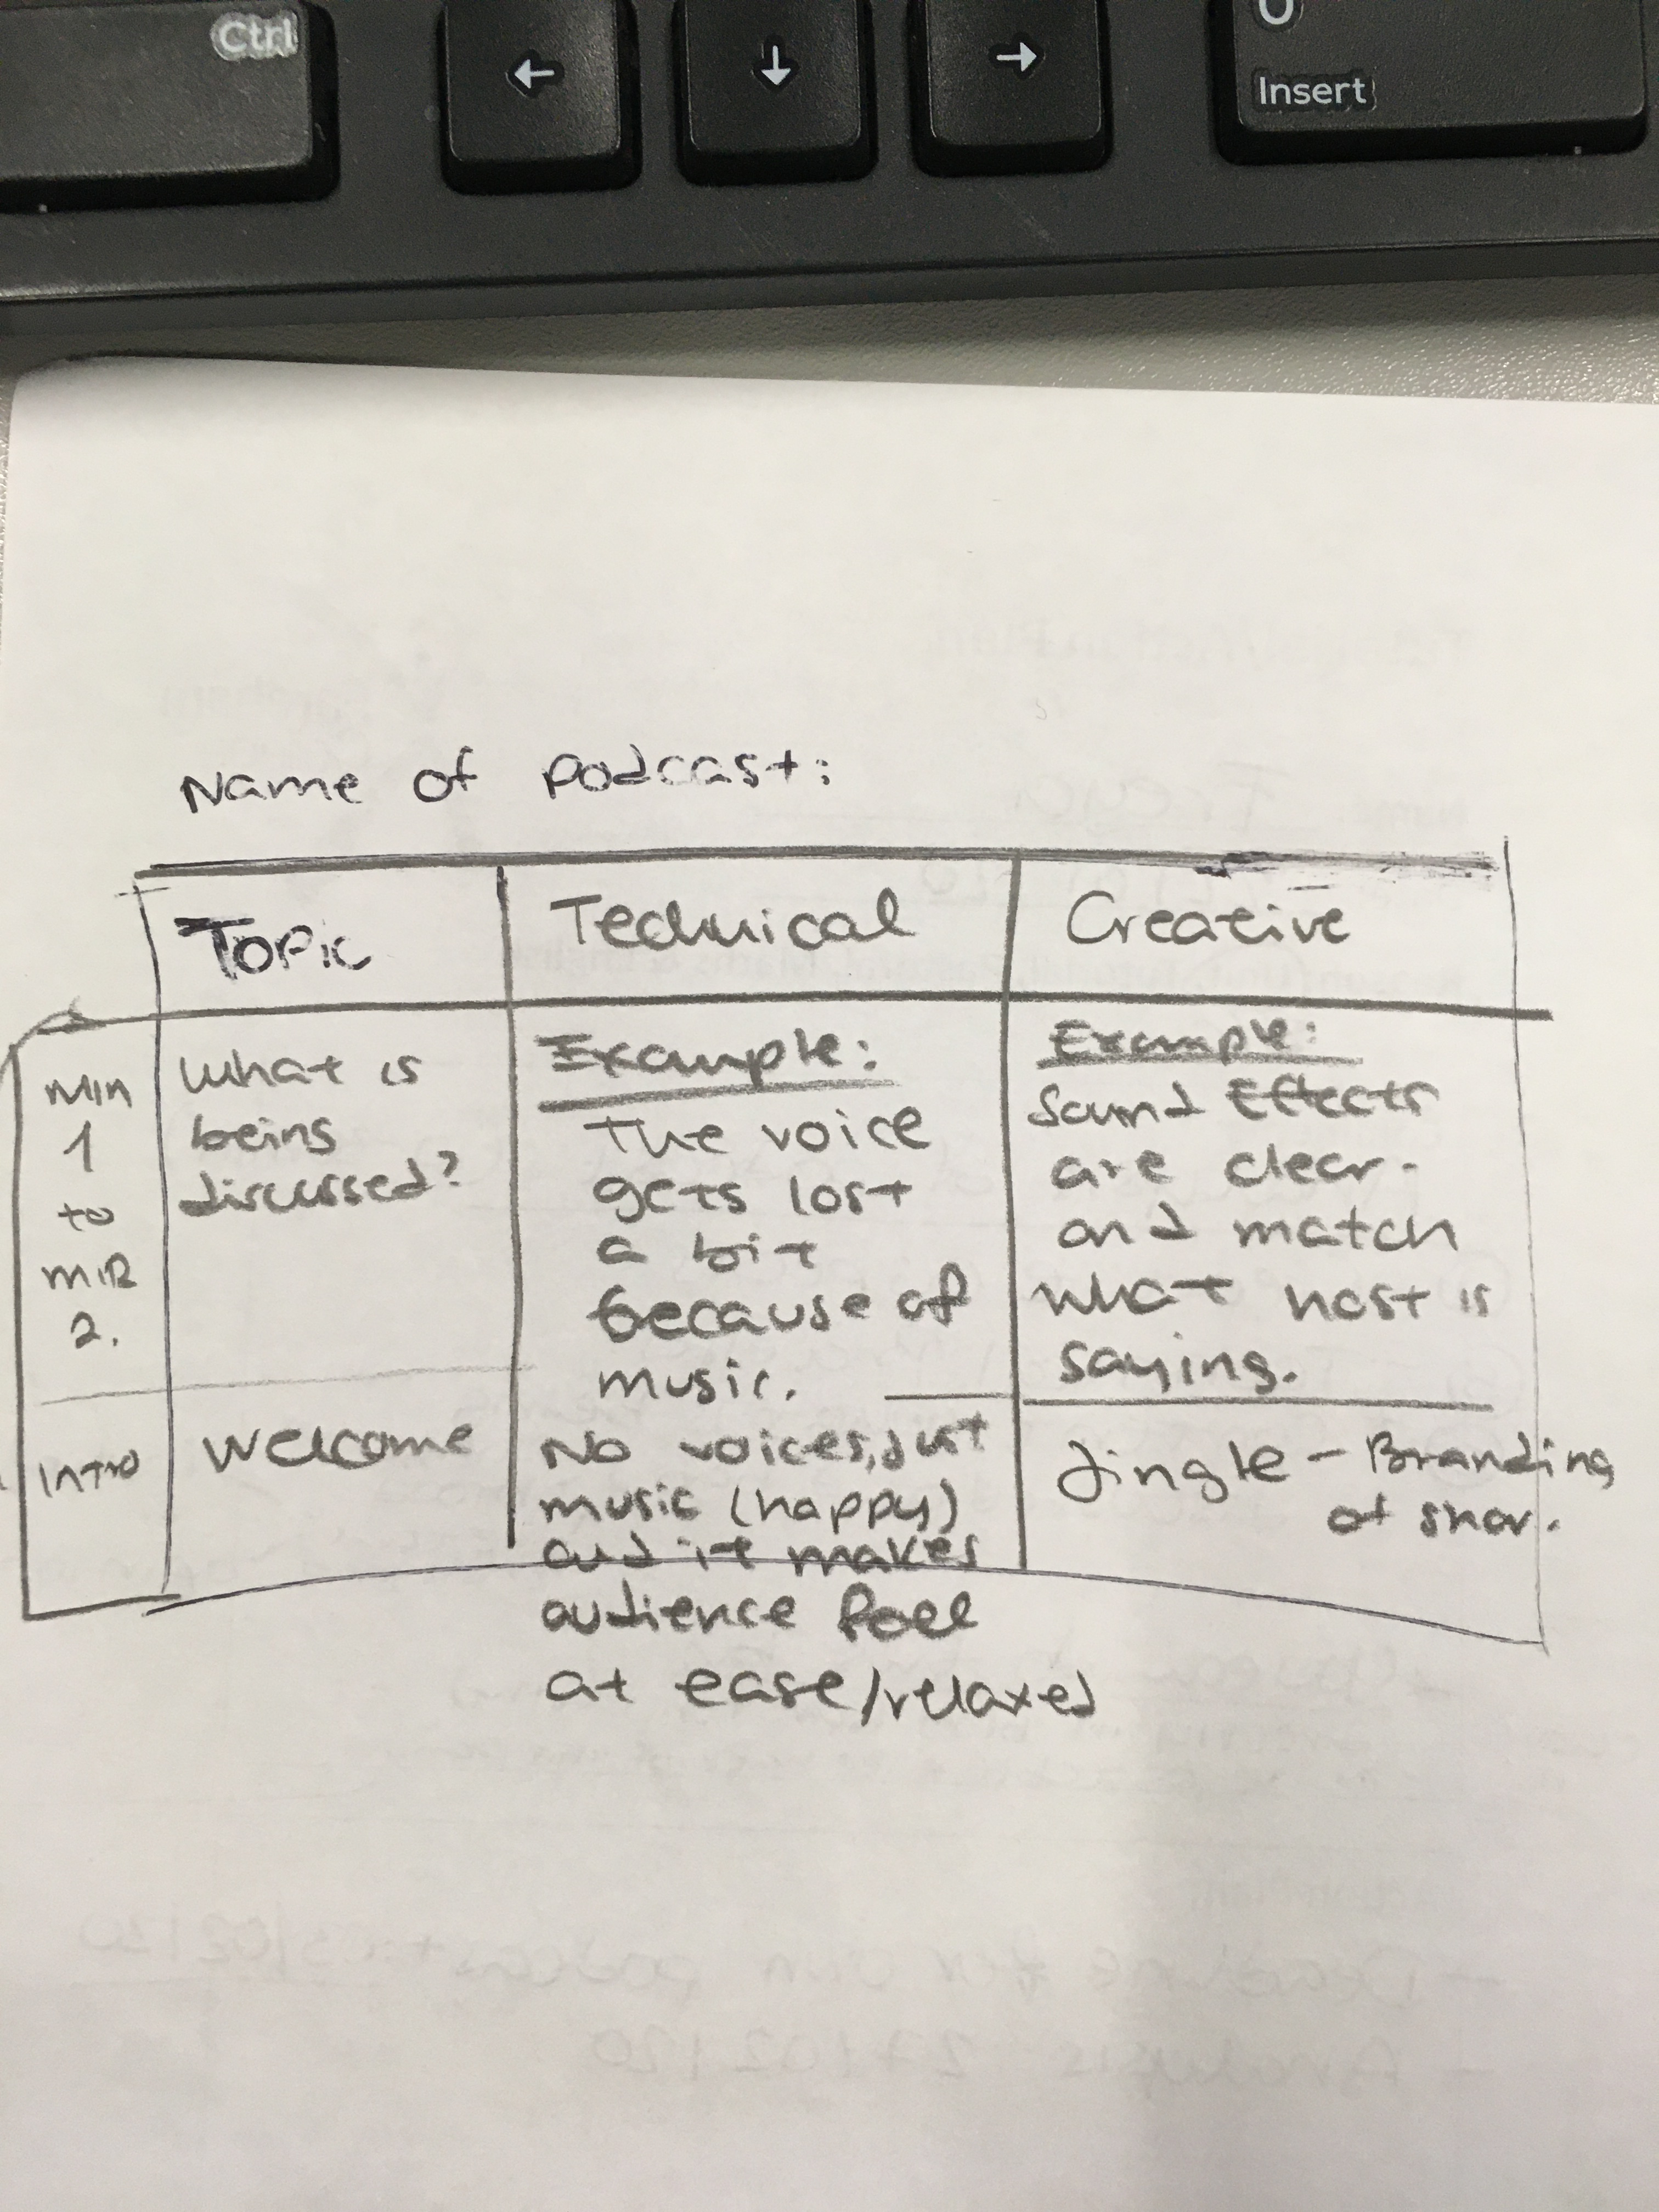 Ctrl
←
↓
→
0
Insert
Name of podcast:
Topic
Technical
Creative
Min
1
to
min
2.
What is
being
discussed?
Example:
The voice
gets lost
a bit
because of
music.
Example:
Sound Effects
are clear.
and match
what host is
saying.
Intro
Welcome
No voices, just
music (happy)
and it makes
audience feel
at ease/relaxed
Jingle - Branding
of show.
- Deadline for own podcast: 03/02/20
- Analysis 27/02/20